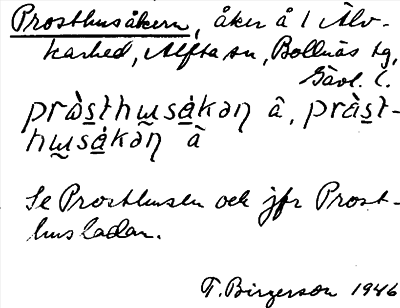 Prosthusåkern, åker å 1 Älv-
karhed, Alfta sn, Bollnäs tg,
Gävl. l.
pràsthusákan â, pràst-
husákan â
Se Prosthusen och jfr Prost-
husladan.
T. Birgerson 1946